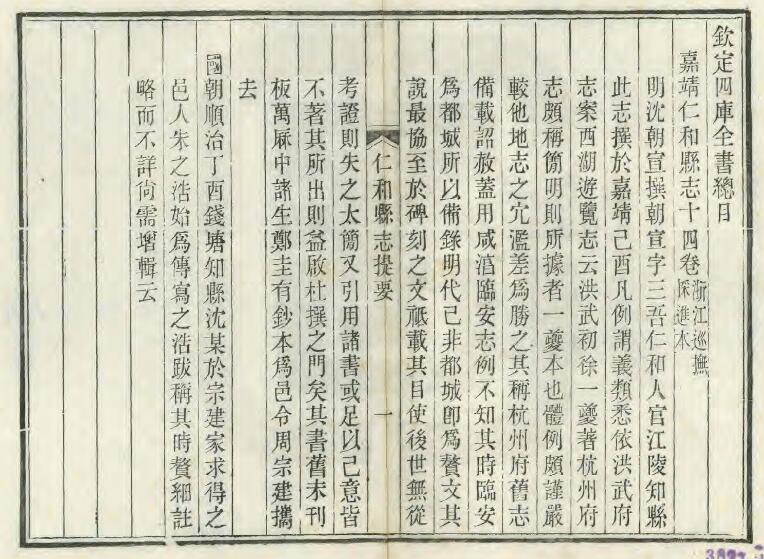 欽定四庫全書總目
嘉靖仁和縣志十四卷浙江巡撫採進本
明沈朝宣撰朝宣字三吾仁和人官江陵知縣
此志撰於嘉靖己酉凡例謂義類悉依洪武府
志案西湖遊覽志云洪武初徐一夔著杭州府
志頗稱簡明則所據者一夔本也體例頗謹嚴
較他地志之宂濫差爲勝之其稱杭州府舊志
備載詔赦蓋用咸淳臨安志例不知其時臨安
爲都城所以備錄明代已非都城卽爲贅文其
說最協至於碑刻之文祗載其目使後世無從
仁和縣志提要 一
考證則失之太簡又引用諸書或足以己意皆
不著其所出則益啟杜撰之門矣其書舊未刊
板萬厤中諸生鄭圭有鈔本爲邑令周宗建攜
去
國朝順治丁酉錢塘知縣沈某於宗建家求得之
邑人朱之浩始爲傳寫之浩跋稱其時贅細註
略而不詳尙需增輯云